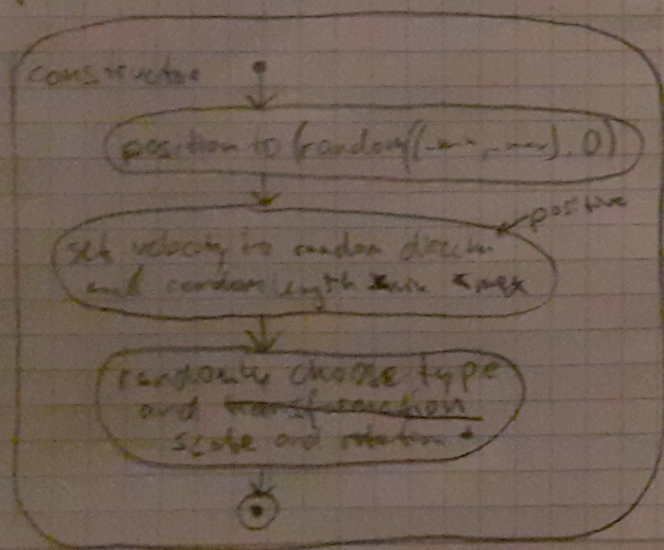 constructor
position to (random(min, max), 0)
positive
set velocity to random
and random length min max
randomly choose type
and transformation
scale and rotation